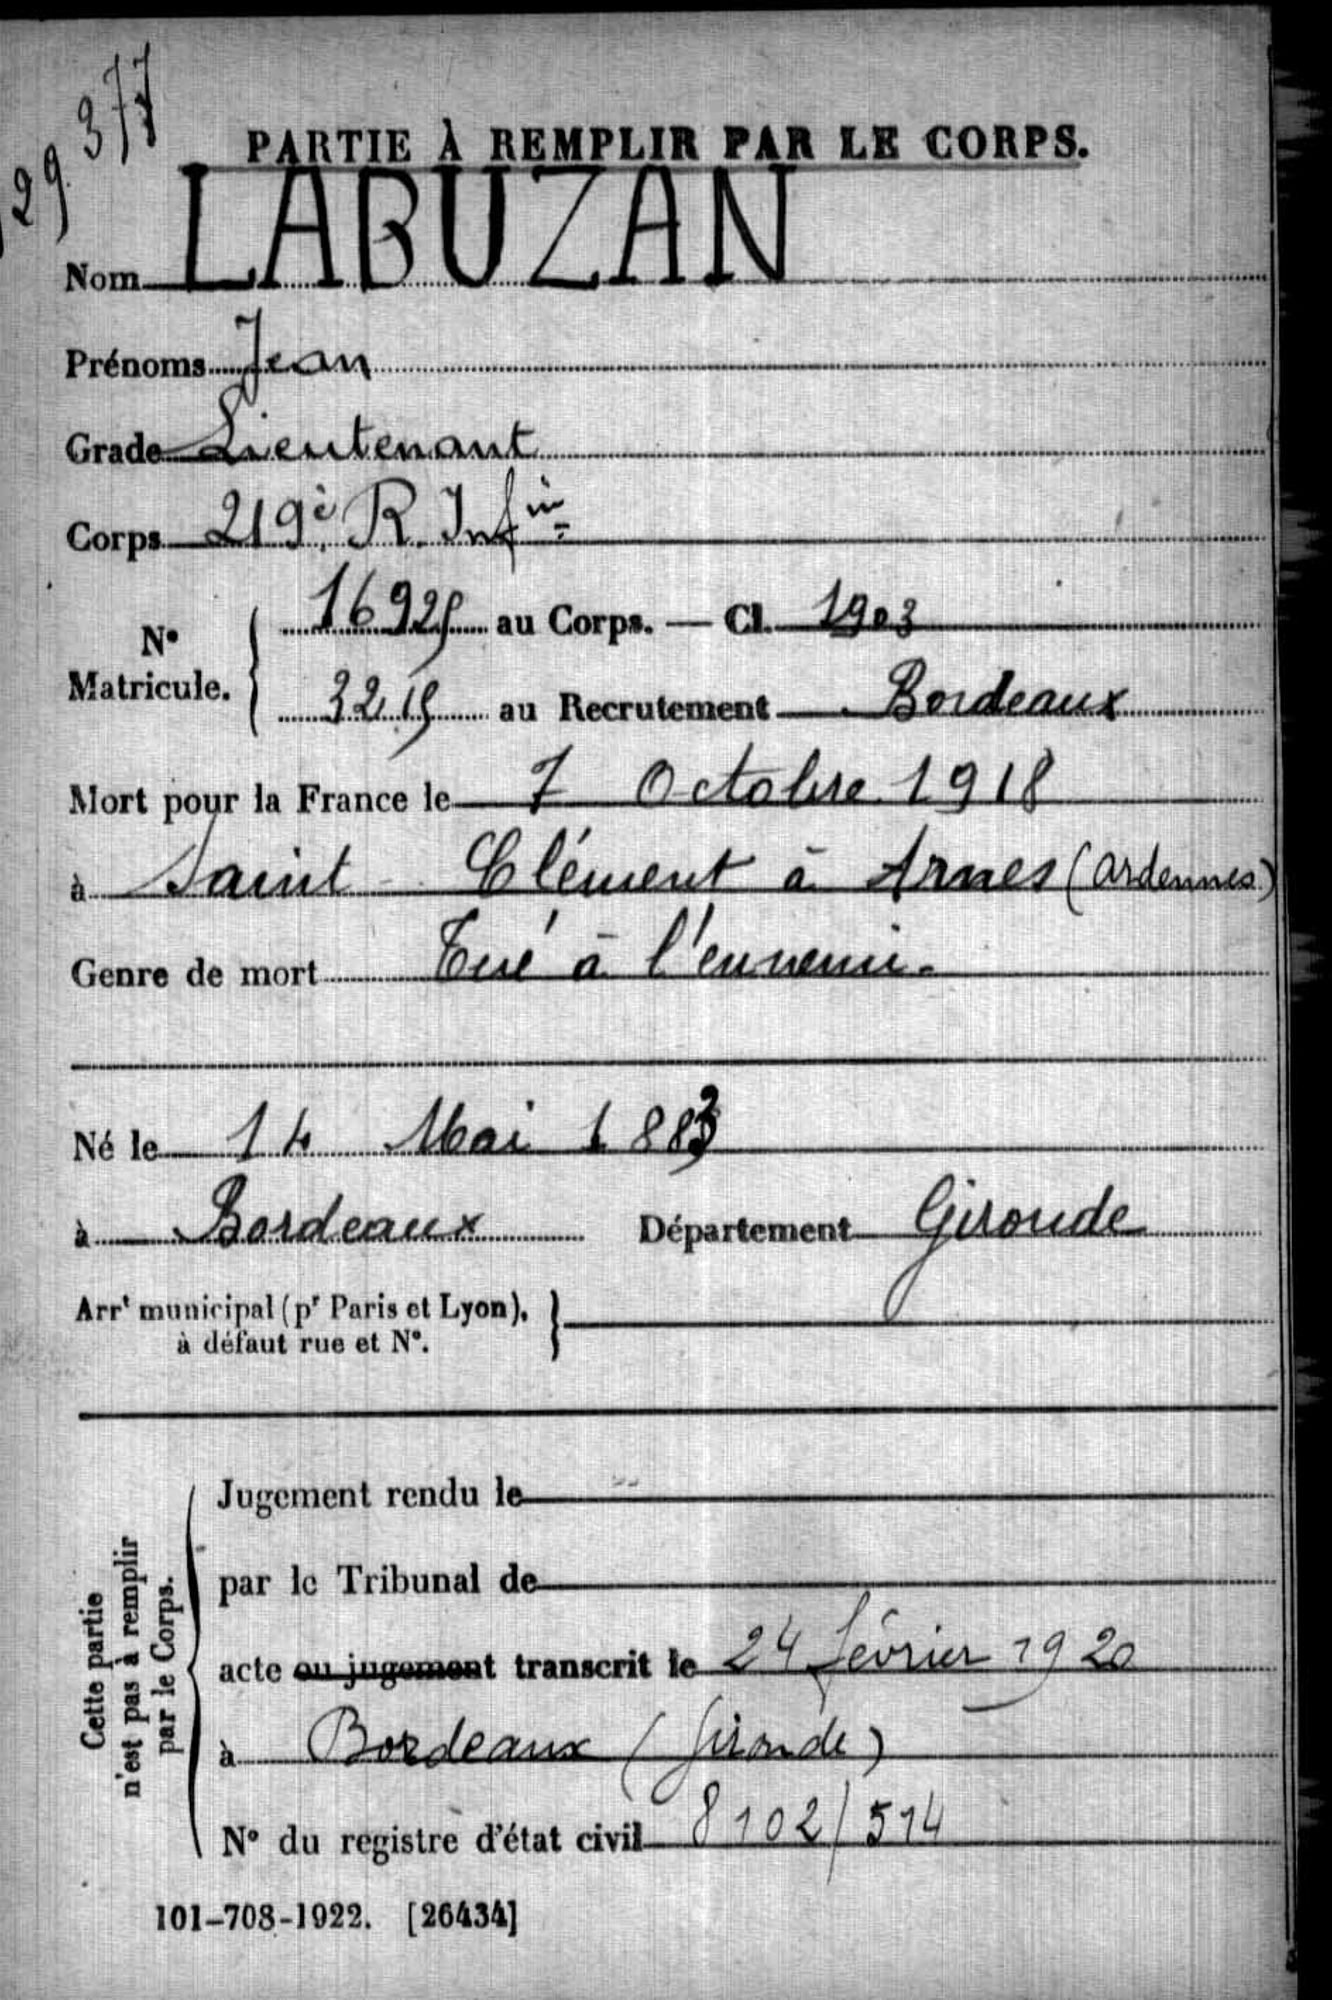 29.377
PARTIE À REMPLIR PAR LE CORPS.
Nom LABUZAN
Prénoms Jean
Grade Lieutenant
Corps 219è R. Infie
N° Matricule. 16925 au Corps. — Cl. 1903
3215 au Recrutement Bordeaux
Mort pour la France le 7 Octobre 1918
à Saint - Clément à Arnes (Ardennes)
Genre de mort Tué à l'ennemi.
Né le 14 Mai 1883
à Bordeaux Département Gironde
Arrt municipal (pr Paris et Lyon),
à défaut rue et N°.
Cette partie
n'est pas à remplir
par le Corps.
Jugement rendu le
par le Tribunal de
acte ou jugement transcrit le 24 février 1920
à Bordeaux (Gironde)
N° du registre d'état civil 8102/514
101-708-1922. [26434]